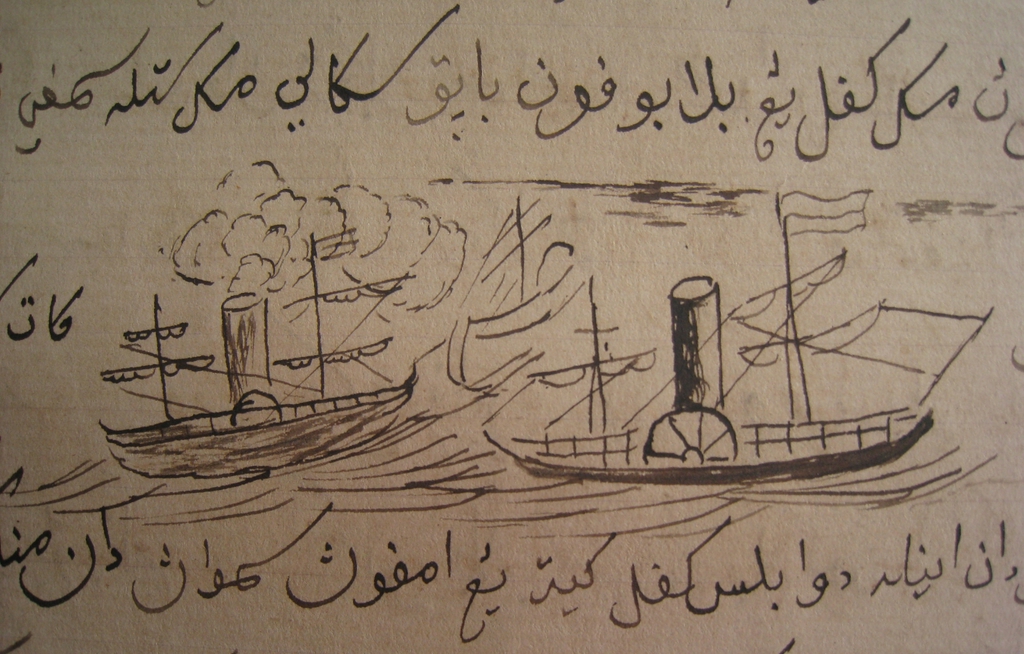 مک کفل يڠ بلابو فون بايق سکالي مک ستله
کات
دان اينله دوا بلس کفل کيت يڠ امفوڽ کواڽ دان